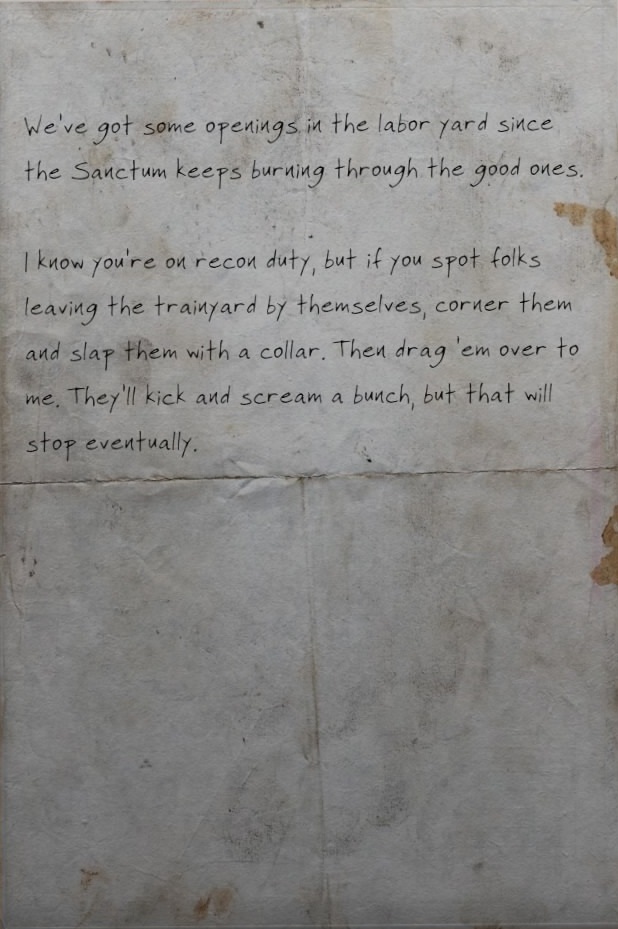 We've got some openings in the labor yard since
the Sanctum keeps burning through the good ones.
I know you're on recon duty, but if you spot folks
leaving the trainyard by themselves, corner them
and slap them with a collar. Then drag 'em over to
me. They'll kick and scream a bunch, but that will
stop eventually.